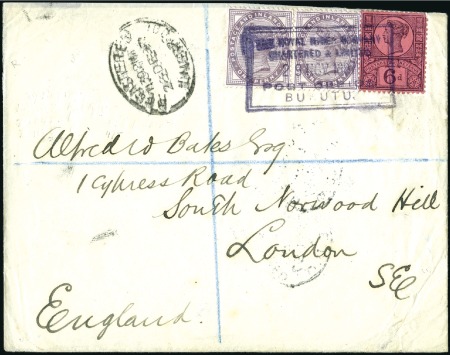 REGISTERED
POSTAGE AND INLAND
THE ROYAL NIGER COMPANY
CHARTERED & LIMITED
POST OFFICE
BURUTU.
6d
Alfred W Bates Esq
1 Cypress Road
South Norwood Hill
London
SE
England.